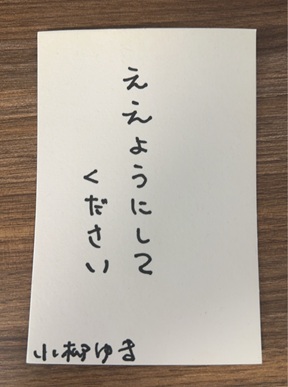 ええようにして
ください
小柳ゆき